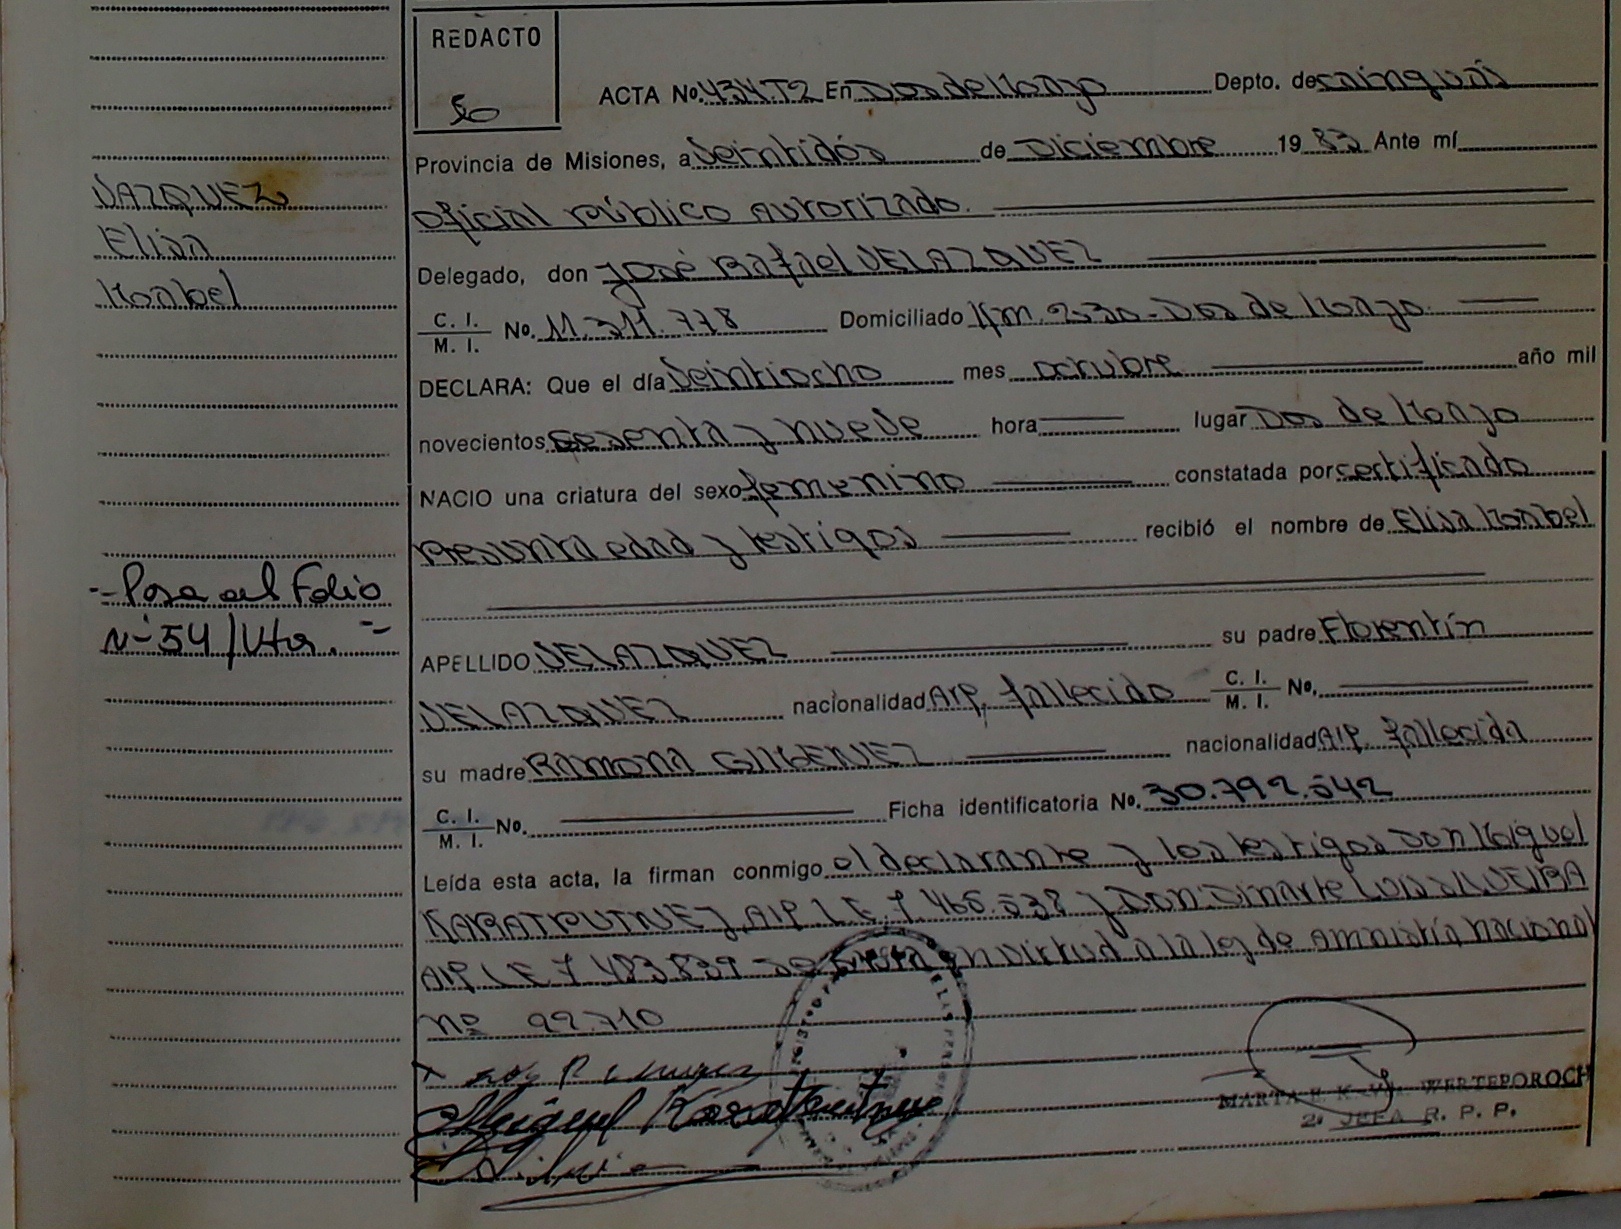 REDACTO
50
ACTA No. 434 T2 En Dos de Mayo Depto. de Cainguás
Provincia de Misiones, a Veintidós de Diciembre 19 83 Ante mí
VAZQUEZ
Oficial Público Autorizado.
Elisa
Delegado, don José Rafael VELAZQUEZ
Mabel
C. I.
M. I.
No. 11.311.778 Domiciliado Km. 2530 - Dos de Mayo.
DECLARA: Que el día Veintiocho mes octubre año mil
novecientos sesenta y nueve hora lugar Dos de Mayo
NACIO una criatura del sexo femenino constatada por certificado
Presunta edad y testigos recibió el nombre de Elisa Mabel
- Pasa al Folio
Nº 54 / Vta. =
APELLIDO VELAZQUEZ su padre Florentín
VELAZQUEZ nacionalidad Arg. fallecido C. I. M. I. No.
su madre RAMONA GIMENEZ nacionalidad Arg. fallecida
C. I. M. I. No. Ficha identificatoria No. 30.792.542
Leída esta acta, la firman conmigo el declarante y los testigos Don Miguel
KARATPUTNEJ, Arg. L E 7.466.538 y Don Dinarte Luis SILVEIRA
Arg. L E 7.483.839 en virtud a la ley de Amnistía nacional
Nº 22.710
Miguel
MARTA E. K. Vda. WERTEPOROCH
2º JEFA R. P. P.